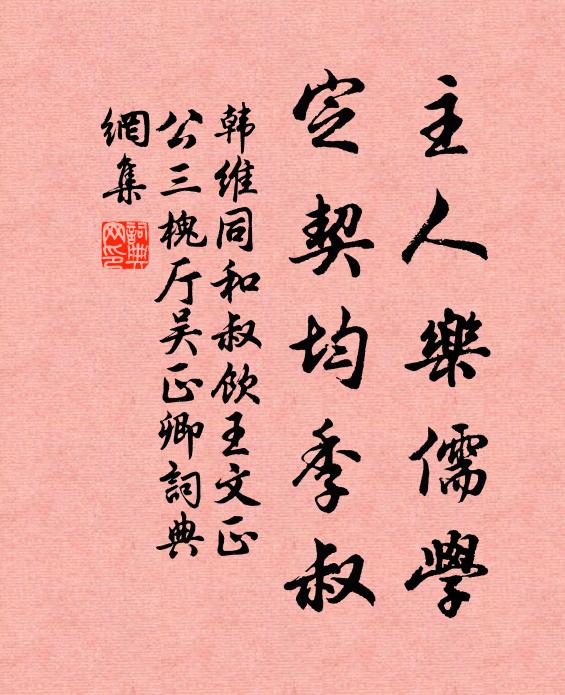 主人樂儒學
定契均季叔
韩維同和叔飲王文正
公三槐厅吴正卿詞典
網集
詞典
网印